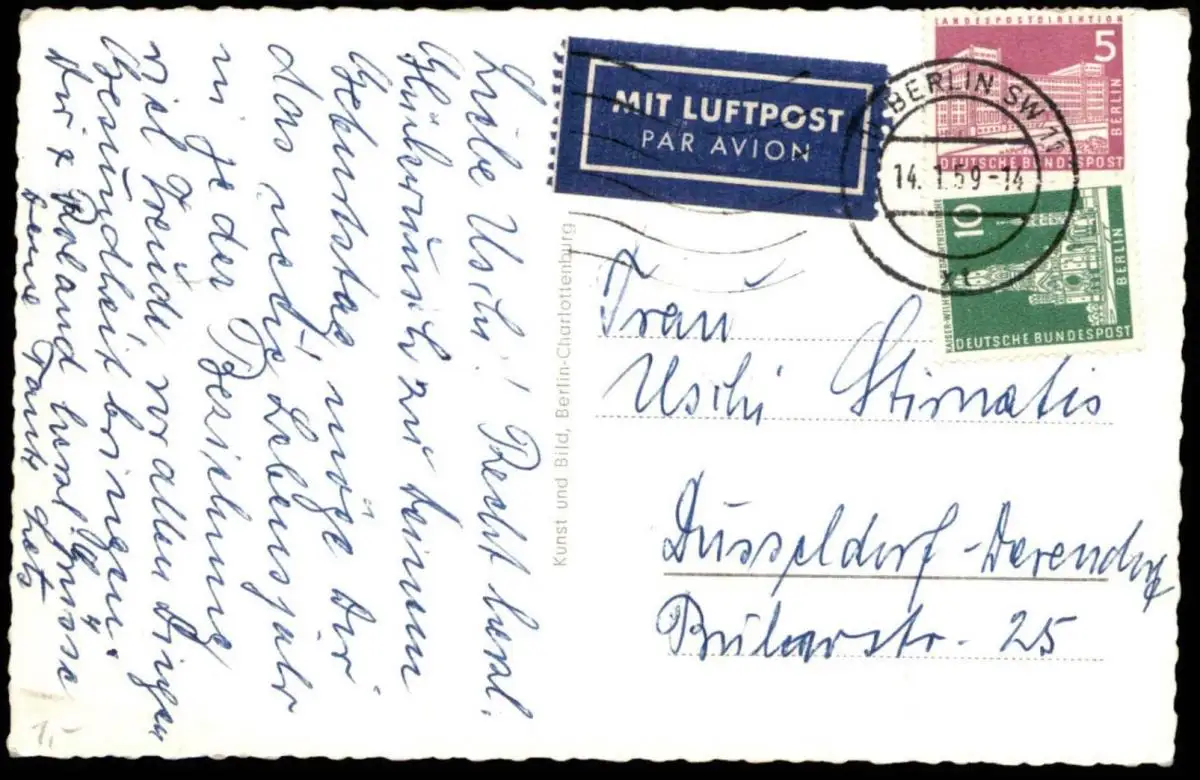 Liebe Uschi! Recht herzl.
Glückwünsch zu deinem
Geburtstag, möge Dir
das neue Lebensjahr
in jeder Beziehung
viel Freude vor allen Dingen
Gesundheit bringen.
Dir & Roland herzl. Grüsse
Deine Tante
MIT LUFTPOST
PAR AVION
LANDESPOSTDIREKTION
5
BERLIN
DEUTSCHE BUNDESPOST
BERLIN SW 11
14. 1. 59-14
xt
10
BERLIN
DEUTSCHE BUNDESPOST
Kunst und Bild, Berlin-Charlottenburg
Frau
Uschi Stirnatis
Düsseldorf-Derendorf
Bülowstr. 25
1,-